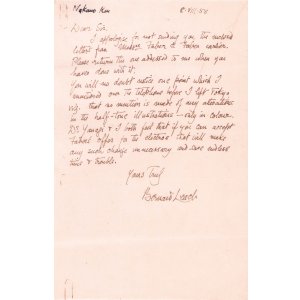 Nakano Ku
8-VIII-53
Dear Sir,
I apologise for not sending you the enclosed
letters from Messrs Faber & Faber earlier.
Please return the one addressed to me when you
have done with it.
You will no doubt notice one point which I
mentioned over the telephone before I left Tokyo
viz. that no mention is made of any alteration
in the half-tone illustrations – only in colour.
Dr Yanagi & I both feel that if you can accept
Fabers' offer for the electros that will make
any such change unnecessary and save endless
time & trouble.
Yours Truly
Bernard Leach